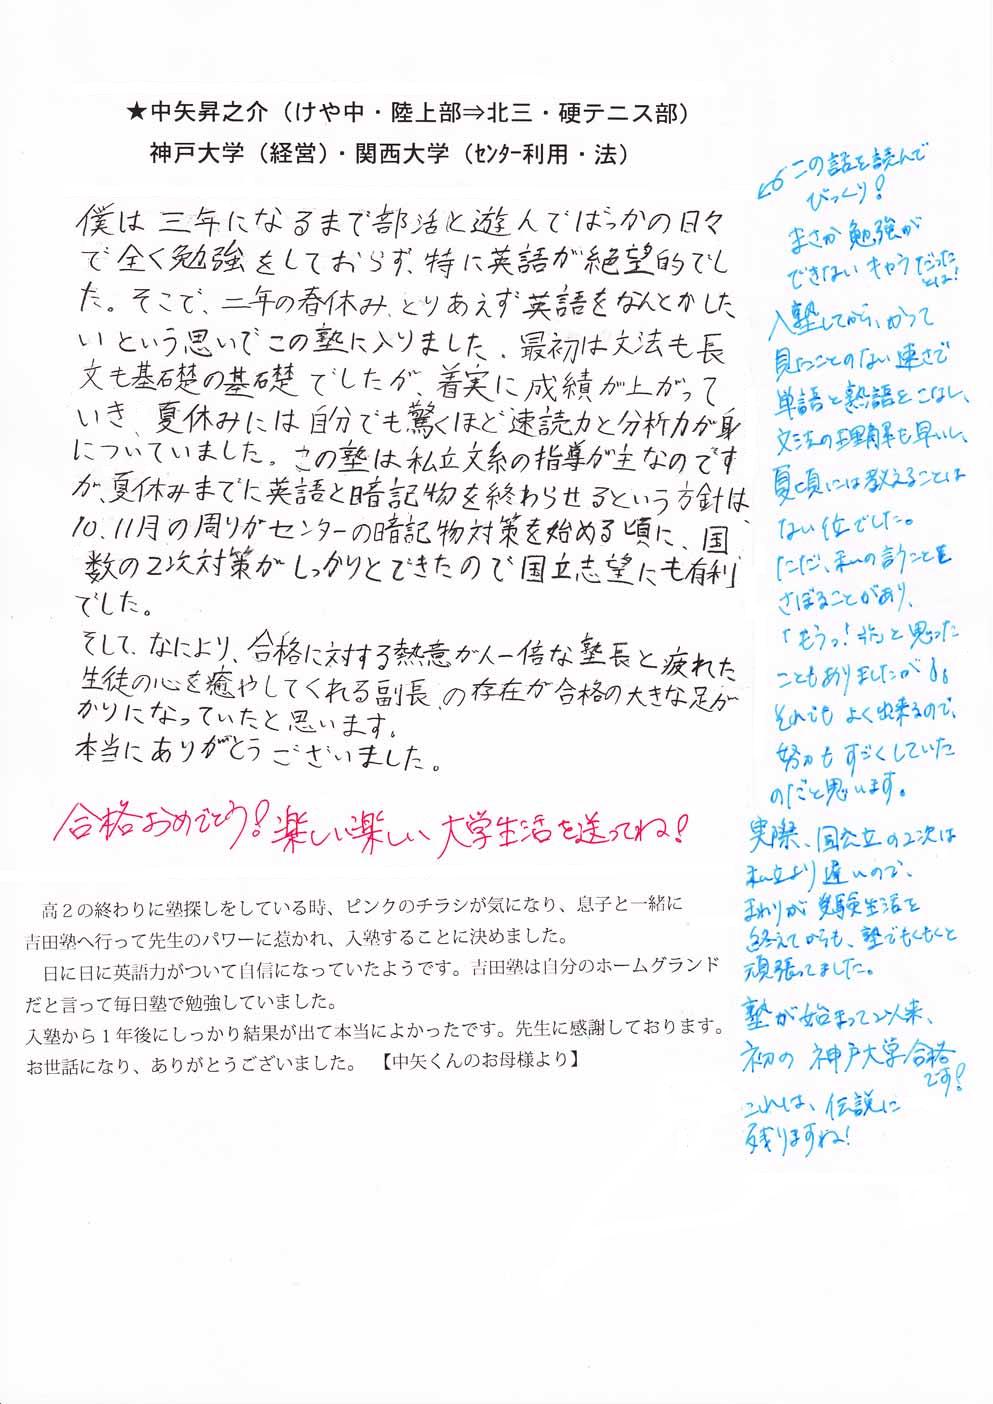 ★中矢昇之介（けや中・陸上部⇒北三・硬テニス部）
神戸大学（経営）・関西大学（ｾﾝﾀｰ利用・法）
僕は三年になるまで部活と遊んでばっかの日々
で全く勉強をしておらず、特に英語が絶望的でし
た。そこで、二年の春休み、とりあえず英語をなんとかした
いという思いでこの塾に入りました、最初は文法も長
文も基礎の基礎でしたが、着実に成績が上がって
いき、夏休みには自分でも驚くほど速読力と分析力が身
についていました。この塾は私立文系の指導が主なのです
が、夏休みまでに英語と暗記物を終わらせるという方針は、
10、11月の周りがセンターの暗記物対策を始める頃に、国
数の2次対策がしっかりとできたので国立志望にも有利
でした。
そして、なにより、合格に対する熱意が人一倍な塾長と疲れた
生徒の心を癒やしてくれる副長、の存在が合格の大きな足が
かりになっていたと思います。
本当にありがとうございました。
合格おめでとう!楽しい楽しい大学生活を送ってね!
高２の終わりに塾探しをしている時、ピンクのチラシが気になり、息子と一緒に
吉田塾へ行って先生のパワーに惹かれ、入塾することに決めました。
日に日に英語力がついて自信になっていたようです。吉田塾は自分のホームグランド
だと言って毎日塾で勉強していました。
入塾から１年後にしっかり結果が出て本当によかったです。先生に感謝しております。
お世話になり、ありがとうございました。【中矢くんのお母様より】
この話を読んで
びっくり!
まさか勉強が
できないキャラだった
とは!
入塾してから、かつて
見たことのない速さで
単語と熟語をこなし、
文法の理解も早いし、
夏頃には教えることは
ない位でした。
ただ、私の言うことを
さぼることがあり、
「もうっ!」と思った
こともありましたが
それでもよく出来るので、
努力もすごくしていた
のだと思います。
実際、国公立の2次は
私立より遅いので、
まわりが受験生活を
終えてからも、塾でもくもくと
頑張ってました。
塾が始まって以来、
初の神戸大学合格
です!
これは、伝説に
残りますね!